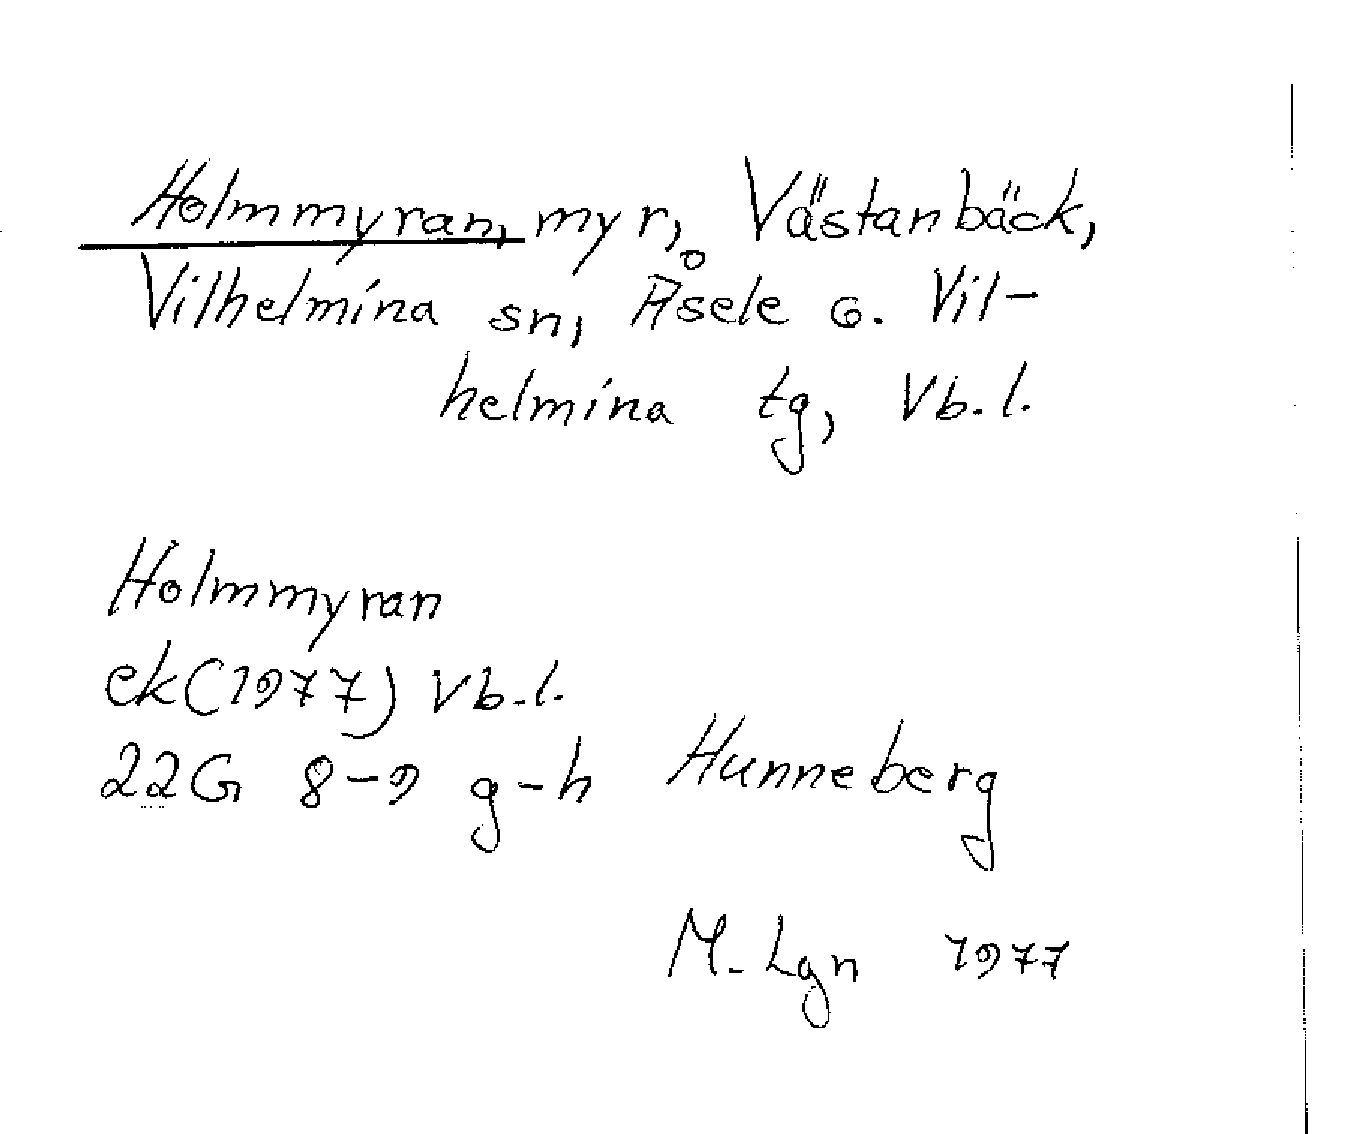 Holmmyran, myr, Västanbäck,
Vilhelmina sn, Åsele o. Vil-
helmina tg, Vb.l.
Holmmyran
ek(1977) Vb.l.
22G 8-9 g-h Hunneberg
M. Lgn 1977